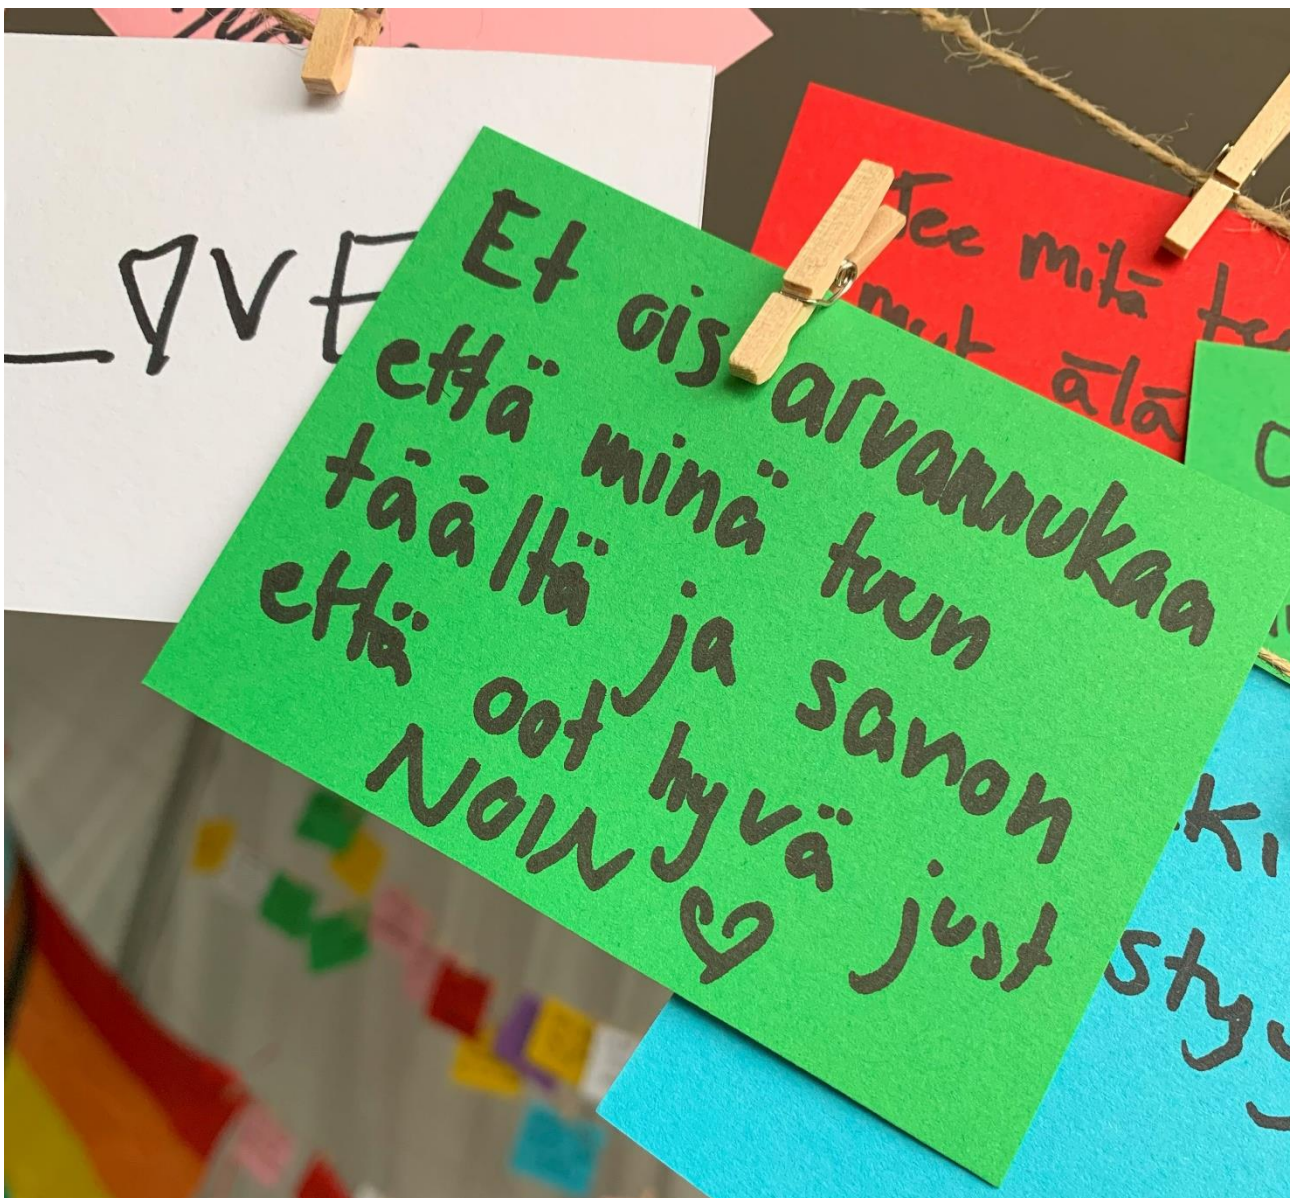 LOVE
Et ois arvannukaa
että minä tuun
täältä ja sanon
että oot hyvä just
NOIN ♡
Tee mitä
mut älä